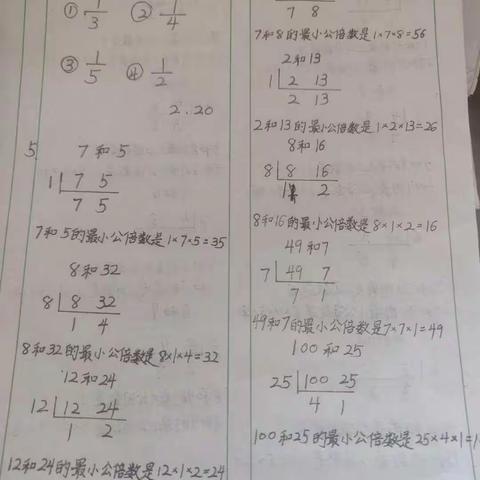 ① 1/3 ② 1/4
③ 1/5 ④ 1/2
2.20
5 7和5
1 7 5
7 5
7和5的最小公倍数是1×7×5=35
8和32
8 8 32
1 4
8和32的最小公倍数是8×1×4=32
12和24
12 12 24
1 2
12和24的最小公倍数是12×1×2=24
7 8
7和8的最小公倍数是1×7×8=56
2和13
1 2 13
2 13
2和13的最小公倍数是1×2×13=26
8和16
8 8 16
1 2
8和16的最小公倍数是8×1×2=16
49和7
7 49 7
7 1
49和7的最小公倍数是7×7×1=49
100和25
25 100 25
4 1
100和25的最小公倍数是25×4×1=1